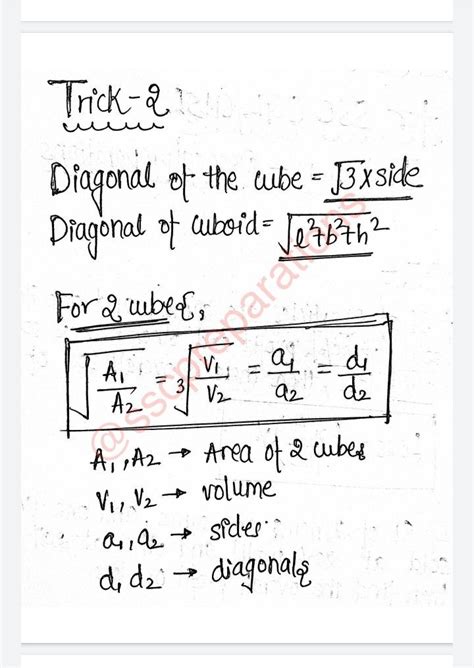 Trick-2
Diagonal of the cube = √3 x side
Diagonal of cuboid = √l²+b²+h²
For 2 cubes,
√A₁/A₂ = ³√V₁/V₂ = a₁/a₂ = d₁/d₂
A₁, A₂ → Area of 2 cubes
V₁, V₂ → volume
a₁, a₂ → sides
d₁ d₂ → diagonals
@sscpreparations